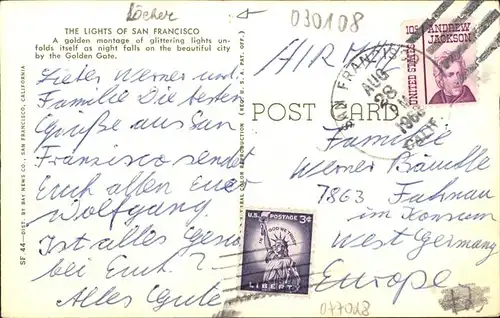 Löcher
030108
THE LIGHTS OF SAN FRANCISCO
A golden montage of glittering lights un-
folds itself as night falls on the beautiful city
by the Golden Gate.
Lieber Werner und
Familie Die besten
Grüße aus San
Franzisco sendet
Euch allen Euer
Wolfgang.
Ist alles gesund
bei Euch?
Alles Gute
SF 44—DIST. BY BAY NEWS CO., SAN FRANCISCO, CALIFORNIA
(REG. U. S. PAT. OFF.)
AIR MAIL
POST CARD
10c ANDREW
JACKSON
UNITED STATES
SAN FRANCISCO
AUG
28
PM
CALIF.
Familie
Werner
7863 Fahrnau
im Konsum
West Germany
Europe
U.S. POSTAGE 3¢
IN GOD WE TRUST
LIBERTY
077028